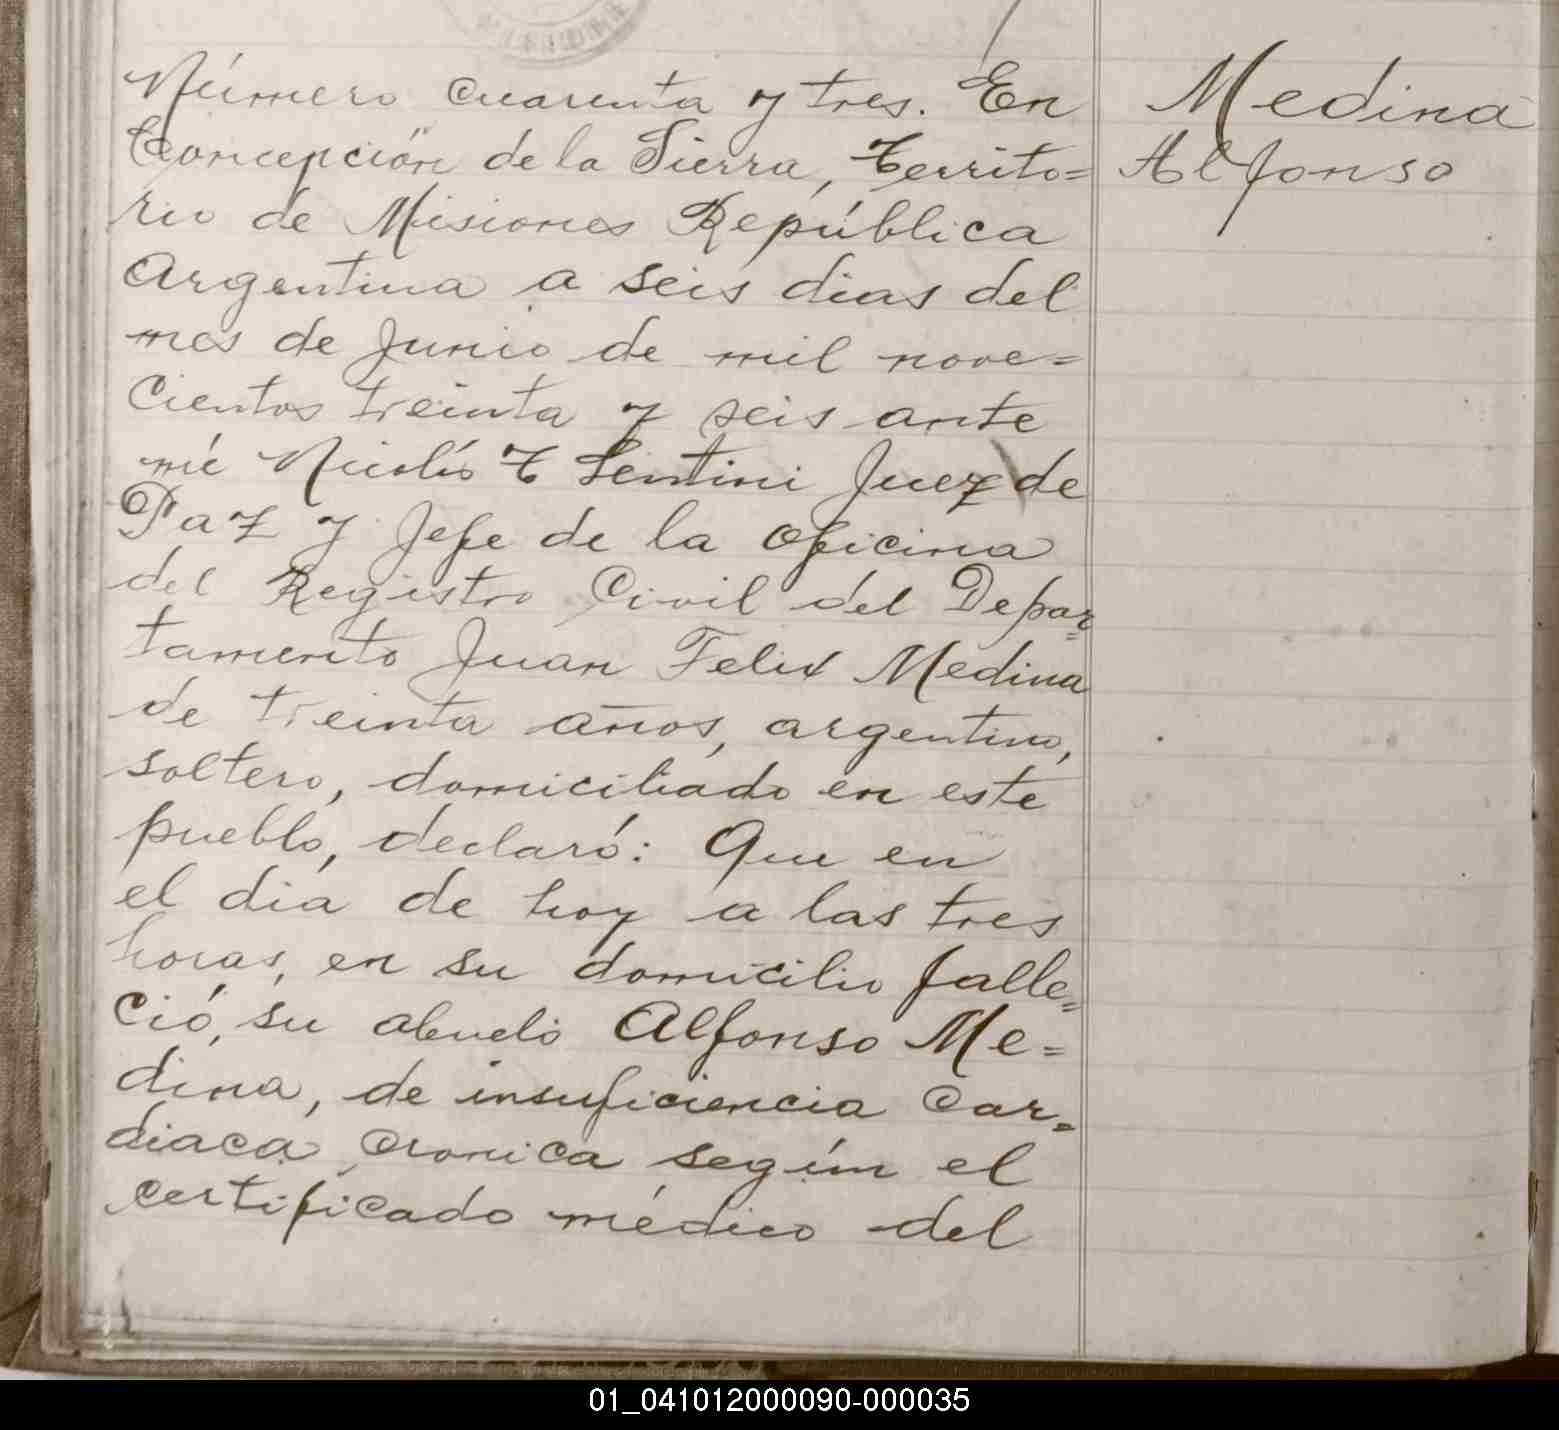 Número cuarenta y tres. En
Concepción de la Sierra, Territo=
rio de Misiones República
Argentina a seis dias del
mes de Junio de mil nove=
cientos treinta y seis ante
mí Nicolás T Sentini Juez de
Paz y Jefe de la Oficina
del Registro Civil del Depar=
tamento Juan Felix Medina
de treinta años, argentino,
soltero, domiciliado en este
pueblo, declaró: Que en
el dia de hoy a las tres
horas, en su domicilio falle=
ció, su abuelo Alfonso Me=
dina, de insuficiencia Car=
diaca Cronica según el
certificado médico del
Medina
Alfonso
01_041012000090-000035